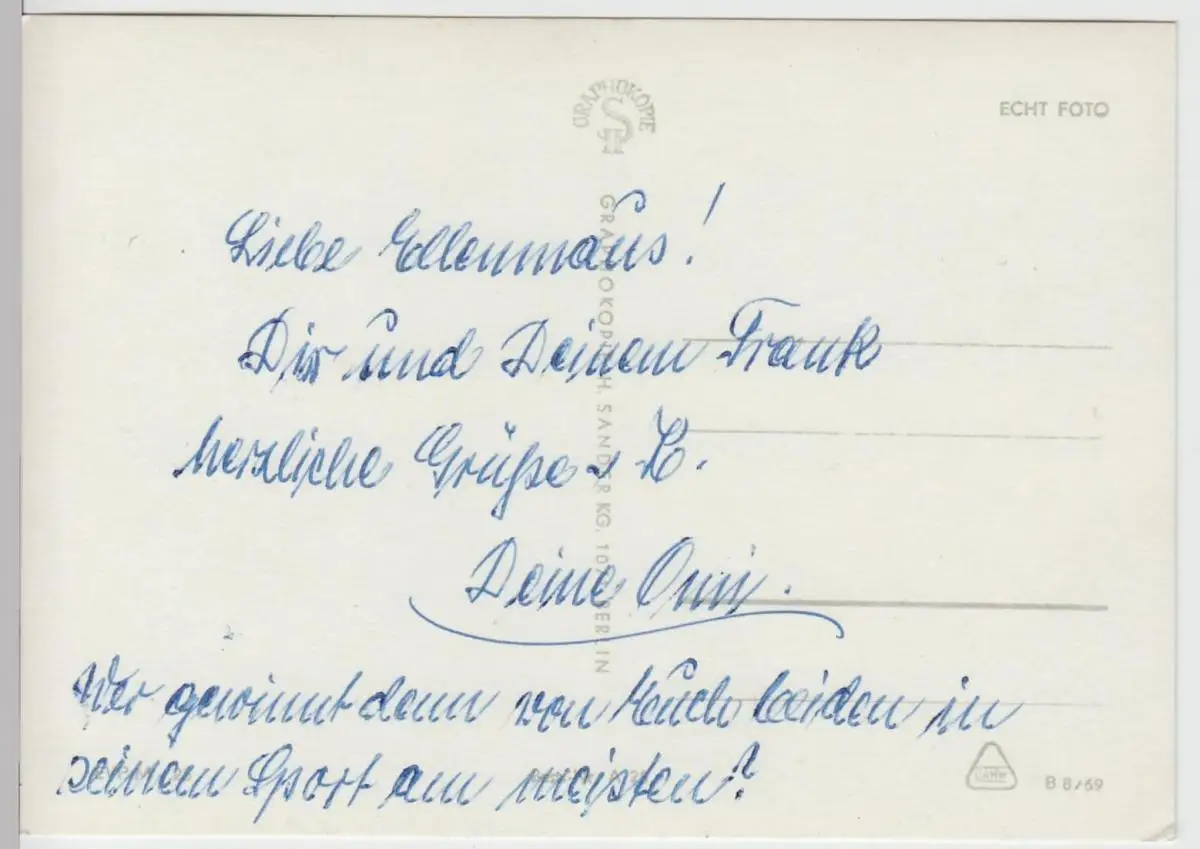 GRAPHOKOPIE
ECHT FOTO
Liebe Ellenmaus!
Dir und Deinem Frank
herzliche Grüße u. K.
Deine Omi.
Wer gewinnt denn von Euch beiden in
seinem Sport am meisten?
H. SANDER KG.
BERLIN
B 8/69